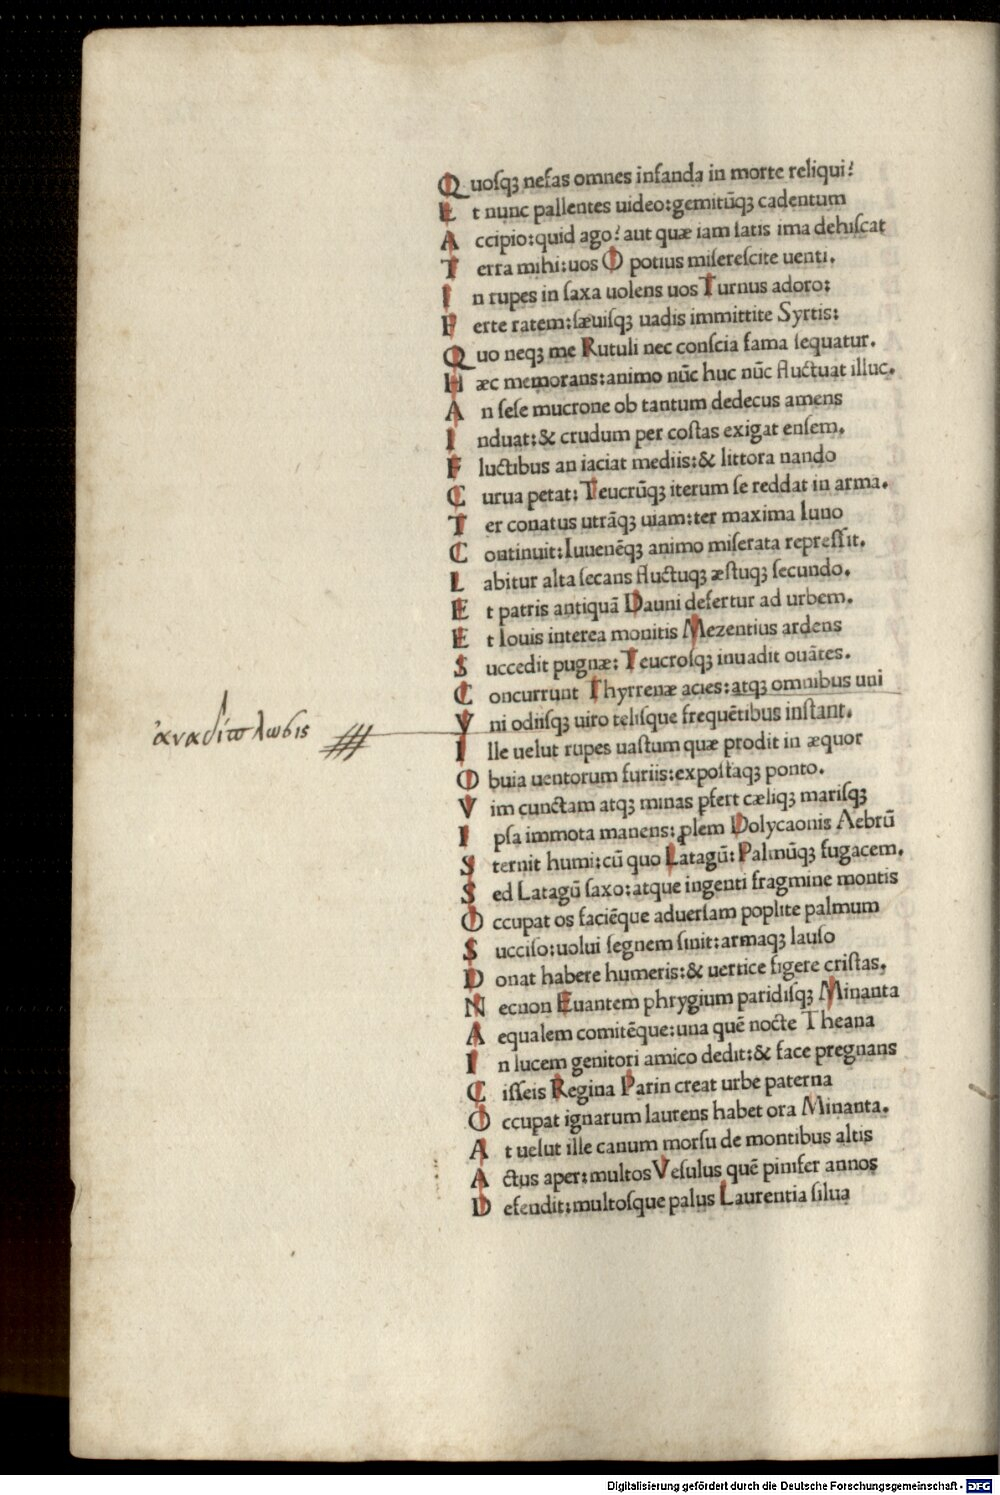 Quoſqꝫ nefas omnes infanda in morte reliqui?
Et nunc pallentes uideo:gemitūqꝫ cadentum
Accipio:quid ago? aut quæ iam ſatis ima dehiſcat
Terra mihi:uos O potius miſereſcite uenti.
In rupes in ſaxa uolens uos Turnus adoro:
Ferte ratem:ſæuiſqꝫ uadis immittite Syrtis:
Quo neqꝫ me Rutuli nec conſcia fama ſequatur.
Hæc memorans:animo nūc huc nūc fluctuat illuc.
An ſeſe mucrone ob tantum dedecus amens
Induat:& crudum per coſtas exigat enſem.
Fluctibus an iaciat mediis:& littora nando
Curua petat: Teucrūqꝫ iterum ſe reddat in arma.
Ter conatus utrāqꝫ uiam:ter maxima Iuno
Continuit:Iuuenēqꝫ animo miſerata repreſſit.
Labitur alta ſecans fluctuqꝫ æſtuqꝫ ſecundo.
Et patris antiquā Dauni defertur ad urbem.
Et Iouis interea monitis Mezentius ardens
Succedit pugnæ: Teucroſqꝫ inuadit ouātes.
Concurrunt Thyrrenæ acies:atqꝫ omnibus uni
ἀναδίπλωσις
Vni odiiſqꝫ uiro teliſque frequētibus inſtant.
Ille uelut rupes uaſtum quæ prodit in æquor
Obuia uentorum furiis:expoſtaqꝫ ponto.
Vim cunctam atqꝫ minas pfert cæliqꝫ mariſqꝫ
Ipſa immota manens: ꝓlem Dolycaonis Aebrū
Sternit humi:cū quo Latagū: Palmūqꝫ fugacem.
Sed Latagū ſaxo:atque ingenti fragmine montis
Occupat os faciēque aduerſam poplite palmum
Succiſo:uolui ſegnem ſinit:armaqꝫ lauſo
Donat habere humeris:& uertice figere criſtas.
Necnon Euantem phrygium paridiſqꝫ Minanta
Aequalem comitēque:una quē nocte Theana
In lucem genitori amico dedit:& face pregnans
Ciſſeis Regina Parin creat urbe paterna
Occupat ignarum laurens habet ora Minanta.
At uelut ille canum morſu de montibus altis
Actus aper:multos Veſulus quē pinifer annos
Defendit:multoſque palus Laurentia ſilua
Digitalisierung gefördert durch die Deutsche Forschungsgemeinschaft - DFG